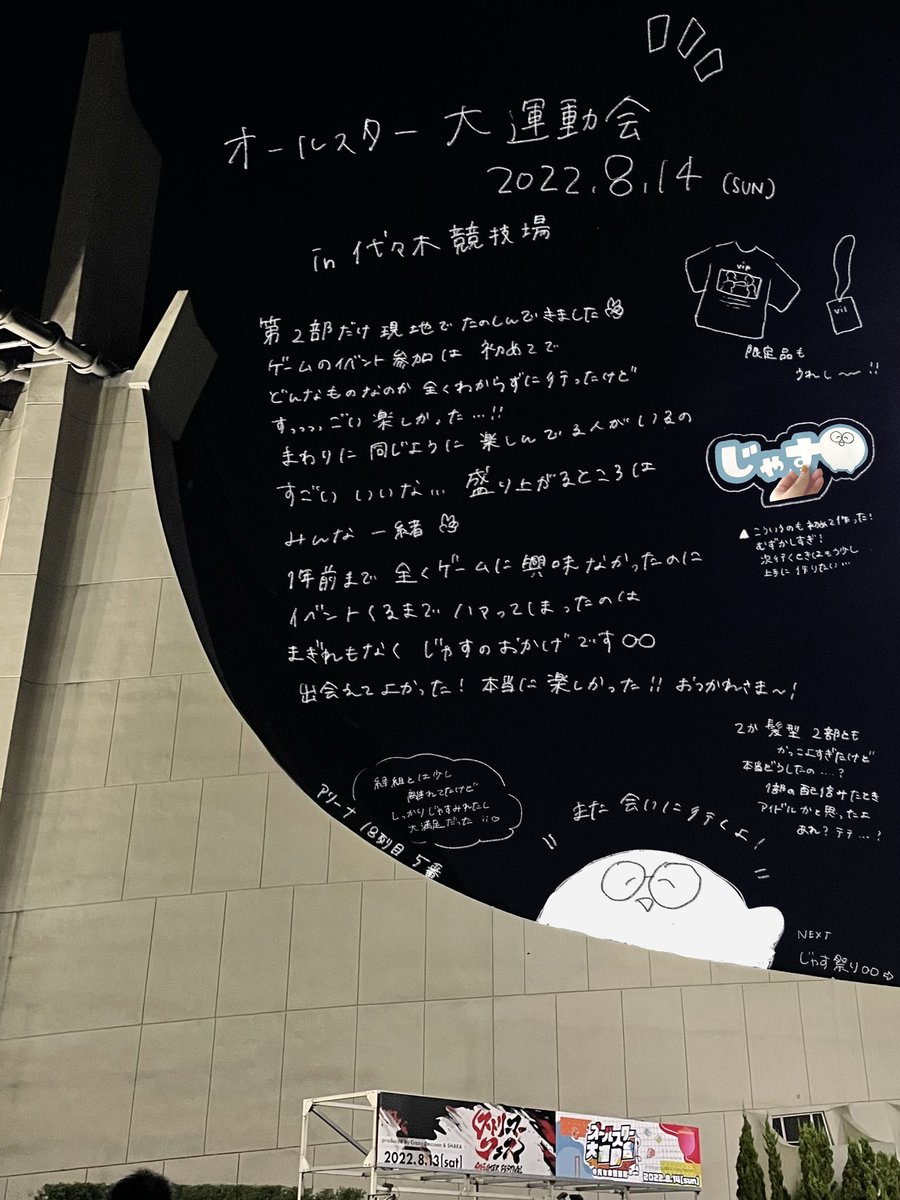 オールスター 大運動会
2022.8.14 (SUN)
in 代々木競技場
第2部だけ現地でたのしんできました
ゲームのイベント参加は 初めてで
どんなものなのか全くわからずに行ったけど
すっっっごい楽しかった…!!
まわりに同じように楽しんでる人がいるの
すごいいいな… 盛り上がるところは
みんな一緒
1年前まで全くゲームに興味なかったのに
イベントくるまでハマってしまったのは
まぎれもなく じゃすのおかげです○○
出会えて上かった! 本当に楽しかった!! おつかれさま〜!
vip
vil
限定品も
うれし〜!!
じゃす
▲こういうのも初めて作った!
むずかしすぎ!
次行くときはもう少し
上手に作りたい…
てか髪型 2部とも
かっこよすぎたけど
本当どうしたの…?
1部の配信みたとき
アイドルかと思ったよ
あれ?テテ…?
緑組とは少し
離れてたけど
しっかりじゃすみれたし
大満足だった
アリーナ 18列目 5番
また会いに行くよ!
NEXT
じゃす祭り○○⇨
ストリーマー
フェス
STREAMER FESTIVAL
produced by Crazy Raccoon & SHAKA
2022.8.13(sat)
オールスター
大運動会
2022.8.14(sun)